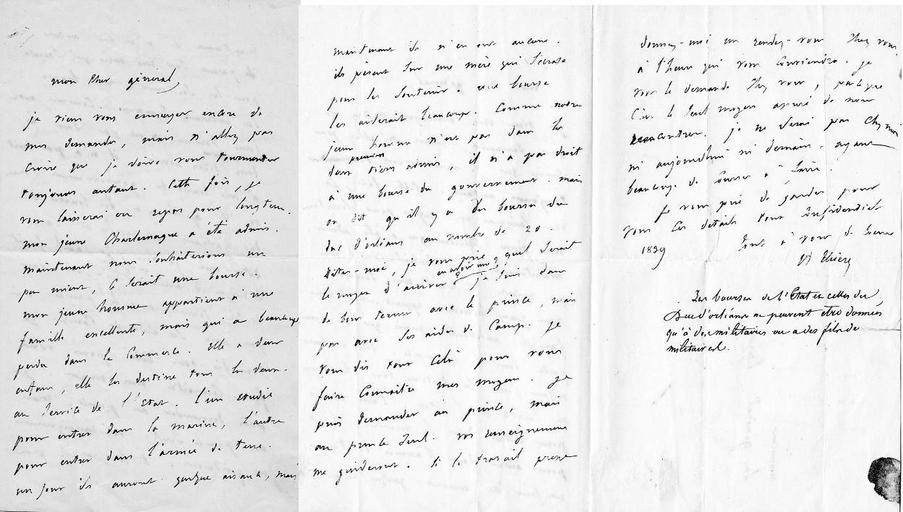 mon cher général,
je viens vous ennuyer encore de
mes demandes, mais n'allez pas
croire que je doive vous tourmenter
toujours autant. Cette fois, je
vous laisserai en repos pour longtems.
mon jeune Charlemagne a été admis.
maintenant nous souhaiterions un
peu mieux, ce serait une bourse.
mon jeune homme appartient à une
famille excellente, mais qui a beaucoup
perdu dans le commerce. Elle a deux
enfans, elle les destine tous les deux
au service de l'Etat. l'un étudie
pour entrer dans la marine, l'autre
pour entrer dans l'armée de terre.
un jour ils auront quelque aisance, mais
maintenant ils n'en ont aucune.
ils pèsent sur une mère qui
pour les soutenir. une bourse
les aiderait beaucoup. Comme notre
jeune homme n'est pas dans les
deux premiers tiers admis, il n'a pas droit
à une bourse du gouvernement. mais
on dit qu'il y a des bourses du
duc d'orléans au nombre de 20.
dites-moi, je vous prie quel serait
le moyen d'arriver je suis dans
de bons termes avec le prince, mais
pas avec les aides de camp. je
vous dis tout cela pour vous
faire connaître mes moyens. je
puis demander au prince, mais
au prince seul. vos renseignemens
me guideront. Si le travail presse
donnez-moi un rendez-vous chez vous
à l'heure qui vous conviendra. je
vous le demande chez vous, parceque
c'est le seul moyen assuré de nous
rencontrer. je ne serai pas chez moi
ni aujourd'hui ni demain, ayant
beaucoup de courses à faire.
Je vous prie de garder pour
vous ces détails tout confidentiels
1839 tout à vous de coeur
A Thiers
Les bourses de l'Etat et celles du
Duc d'orléans ne peuvent être données
qu'à des militaires ou a des fils de
militaires.